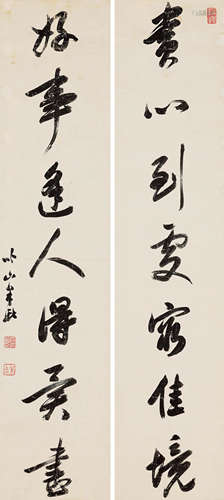 賞心到處窮佳境
好事逢人得異書